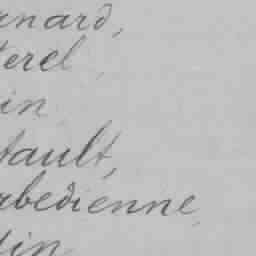 rnard,
terel,
in
tault,
rbedienne,
tin